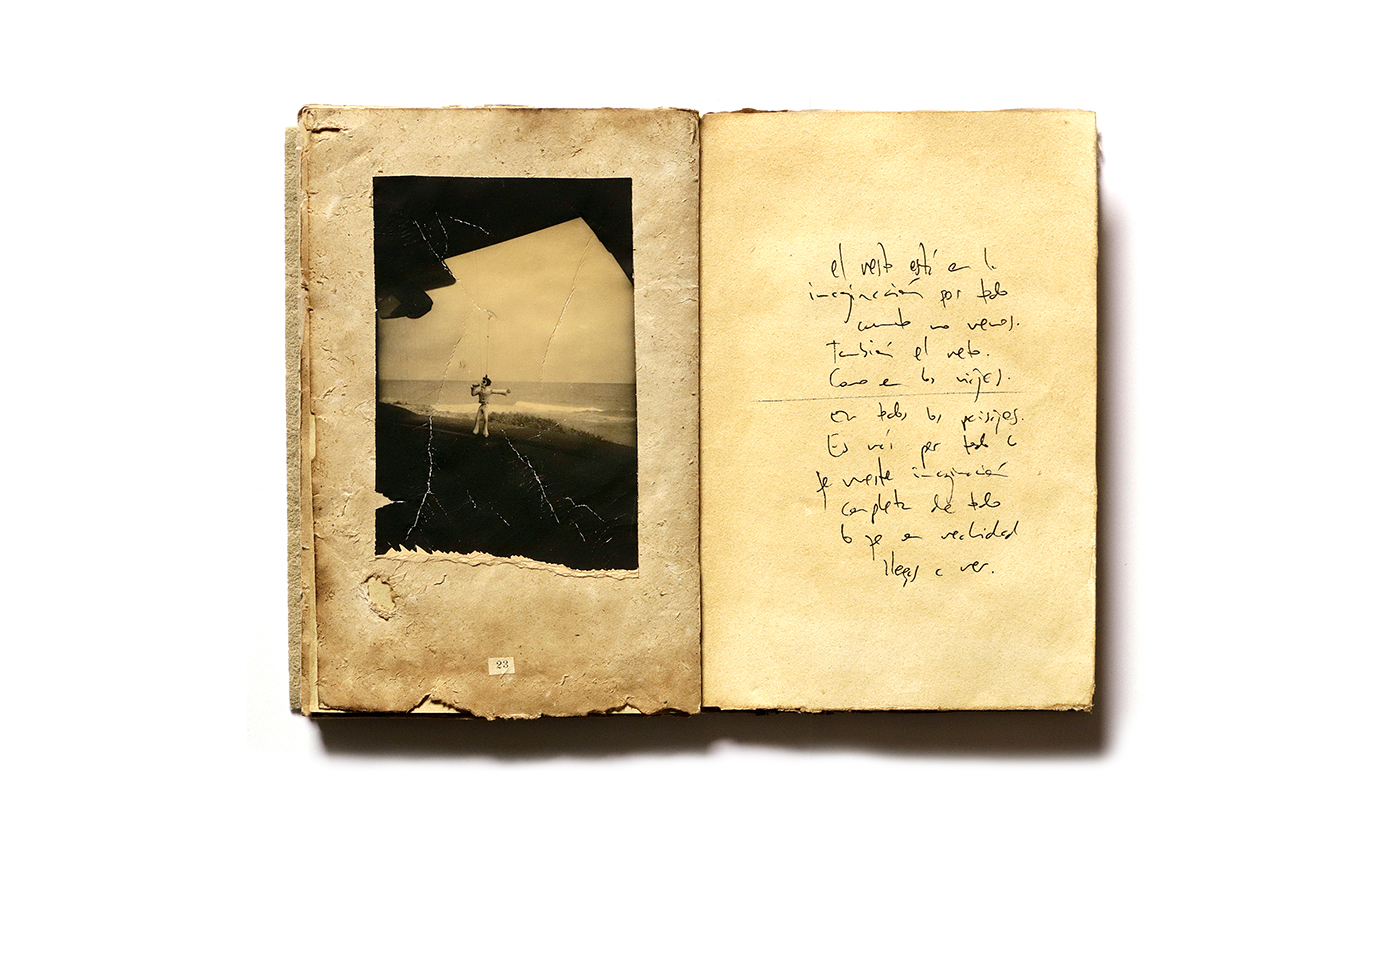 23
el resto está en la
imaginación por todo
cuanto no vemos.
También el reto.
Como en los viajes.
en todos los paisajes.
Es así por todo
que nuestra imaginación
completa de todo
lo que en realidad
llegas a ver.